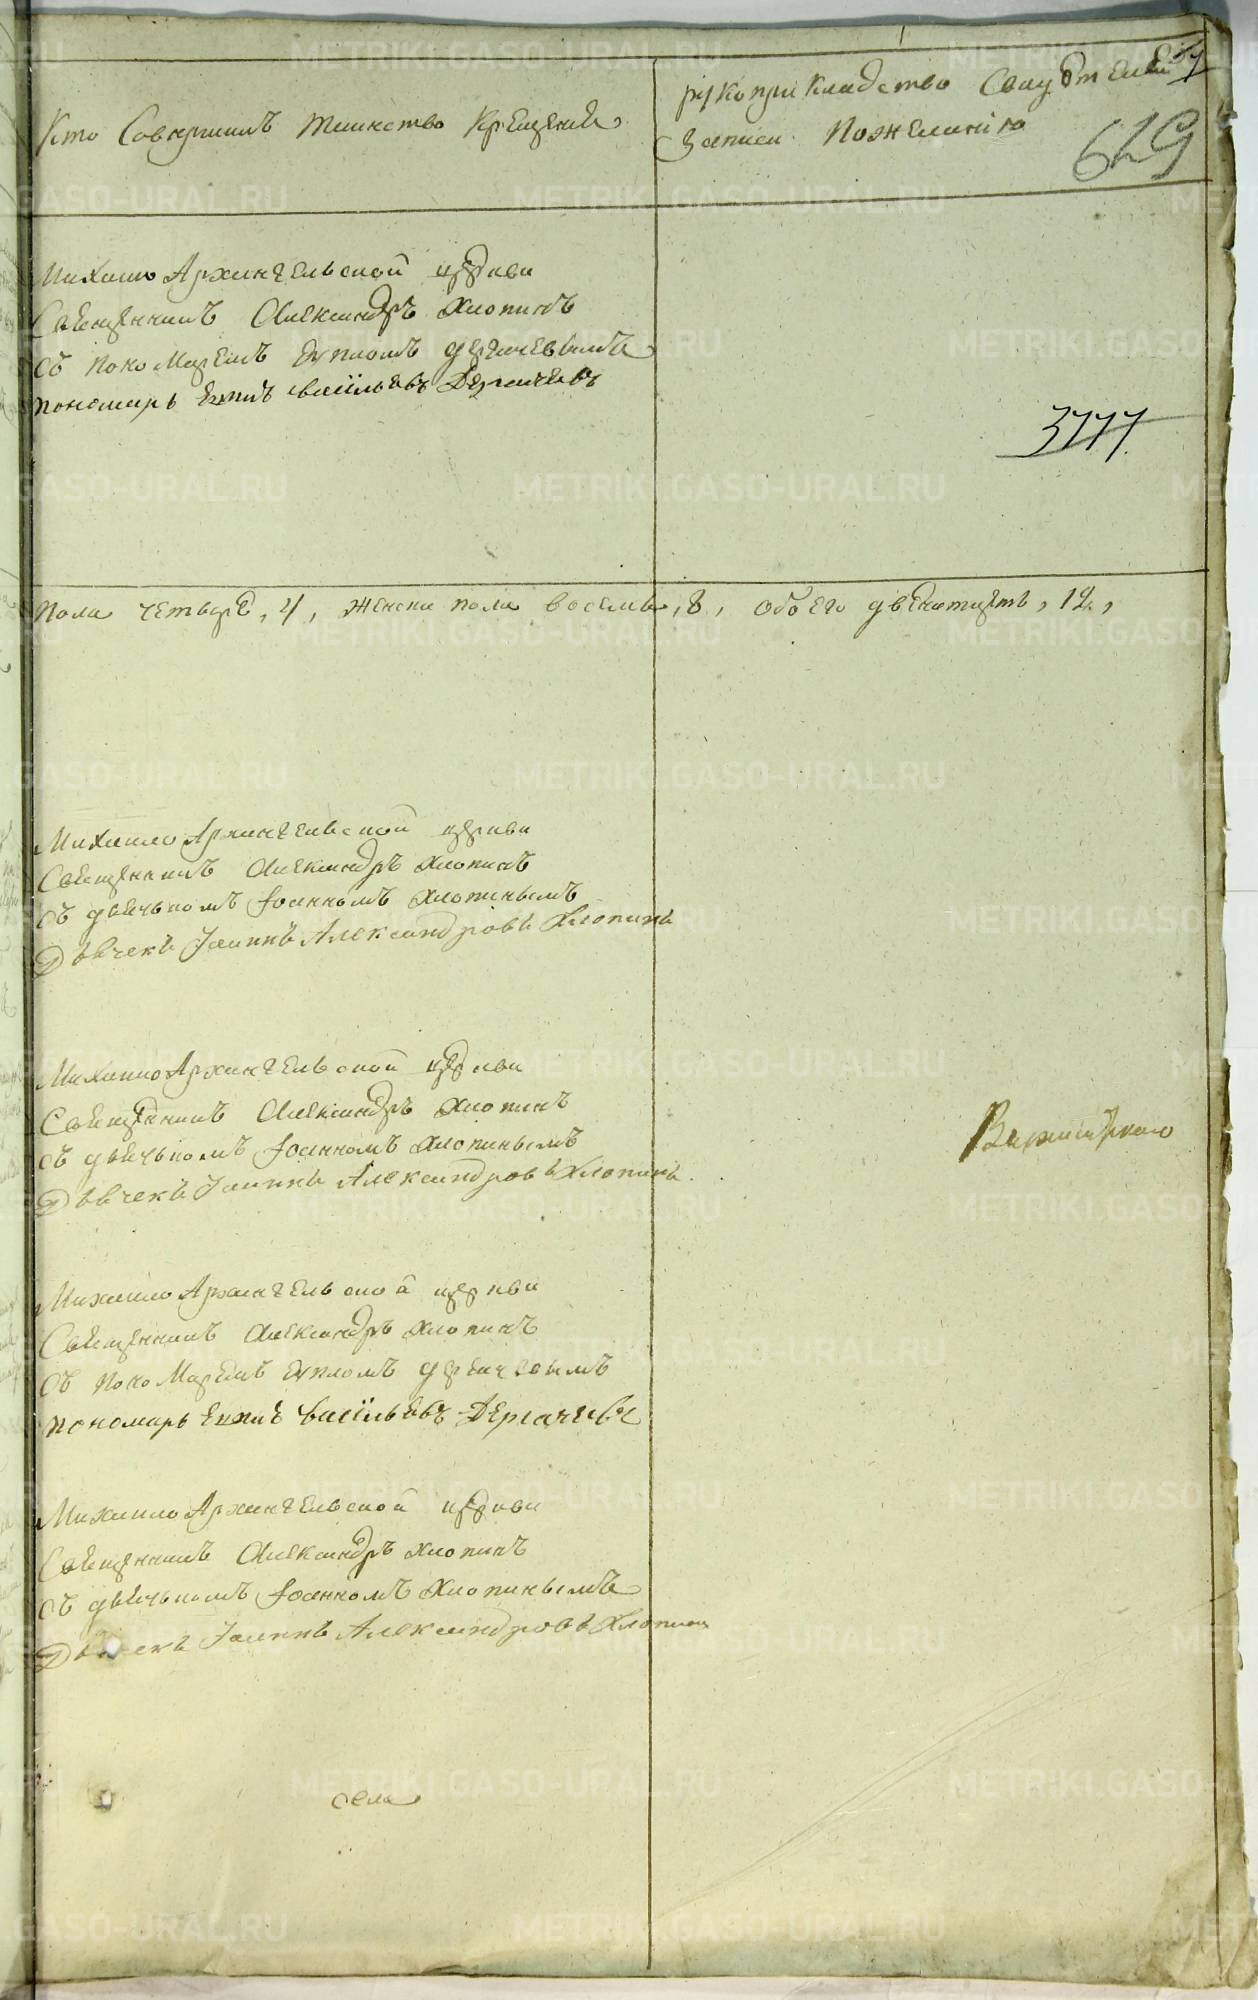 Кто Совершилъ таинство Крещения
рукоприкладство Свидѣтелей
Записи Пожеланию
629
Михаило Архангельской церкви
Священникъ Александръ Хлопинъ
съ пономаремъ Евпломъ Дергачевымъ
пономарь Евплъ васильевъ Дергачевъ
3777
пола четыре, 4, женска пола восемь, 8, обоего двенатцеть, 12,
Михаило Архангельской церкви
Священникъ Александръ Хлопинъ
съ дьячькомъ Іоанномъ Хлопинымъ
Дьячекъ Іоаннъ Александровъ Хлопинъ
Михаило Архангельской церкви
Священникъ Александръ Хлопинъ
съ дьячькомъ Іоанномъ Хлопинымъ
Дьячекъ Іоаннъ Александровъ Хлопинъ
Михаило Архангельской церкви
Священникъ Александръ Хлопинъ
съ пономаремъ Евпломъ Дергачевымъ
пономарь Евплъ васильевъ Дергачевъ
Михаило Архангельской церкви
Священникъ Александръ Хлопинъ
съ дьячькомъ Іоанномъ Хлопинымъ
Дьячекъ Іоаннъ Александровъ Хлопинъ
села
METRIKI.GASO-URAL.RU